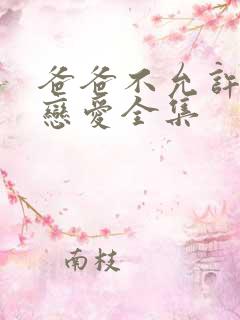 爸爸不允許
戀愛全集
南枝